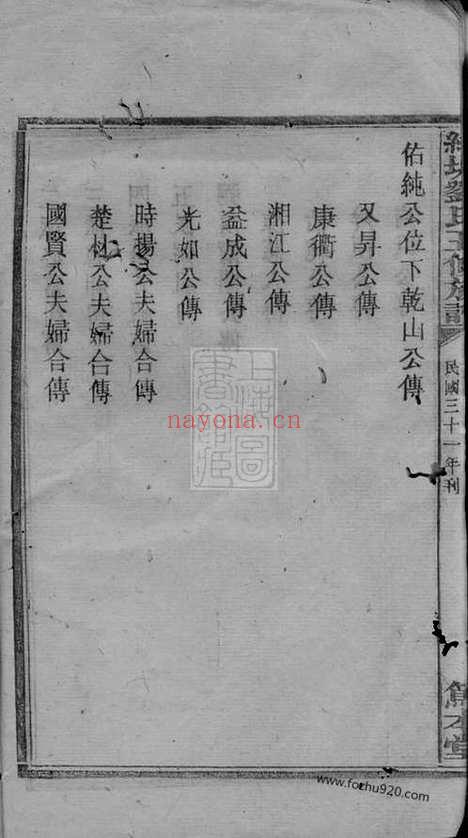 劉氏五修族譜
民國三十一年刊
篤本堂
佑純公位下乾山公傳
又昇公傳
康衢公傳
湘江公傳
益成公傳
光如公傳
時揚公夫婦合傳
楚材公夫婦合傳
國賢公夫婦合傳
nayona.cn
www.fozhu920.com